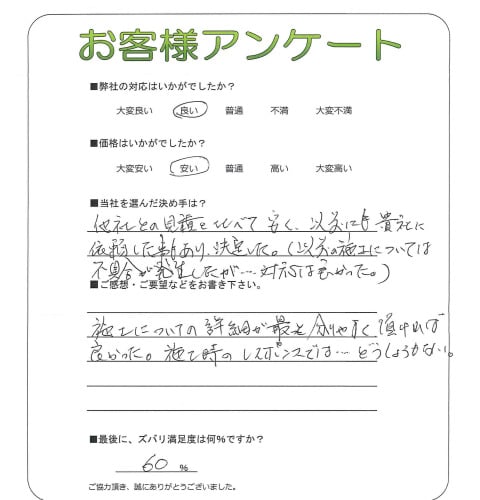 お客様アンケート
■弊社の対応はいかがでしたか？
大変良い 良い 普通 不満 大変不満
■価格はいかがでしたか？
大変安い 安い 普通 高い 大変高い
■当社を選んだ決め手は？
他社との見積と比べて安く、以前にも貴社に
依頼した事あり、決定した。(以前の施工については
不具合が発生したが…対応は良かった。)
■ご感想・ご要望などをお書き下さい。
施工についての詳細が 分りやすく頂ければ
良かった。施工時のレスポンスでは…どうしようもない。
■最後に、ズバリ満足度は何%ですか？
60 %
ご協力頂き、誠にありがとうございました。